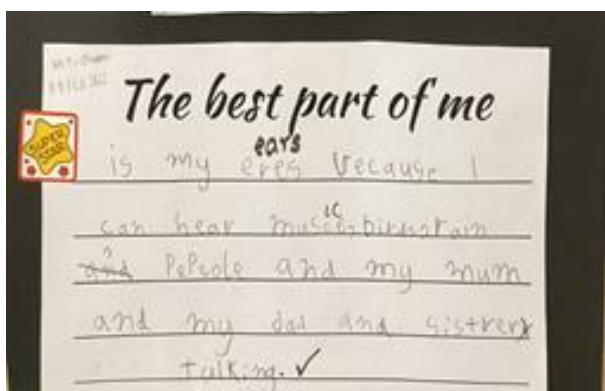 SUPER STAR
The best part of me
ears
is my eres vecause I
ic
can hear
and PePeole and my mum
and my dad and sistrers
talking. ✓